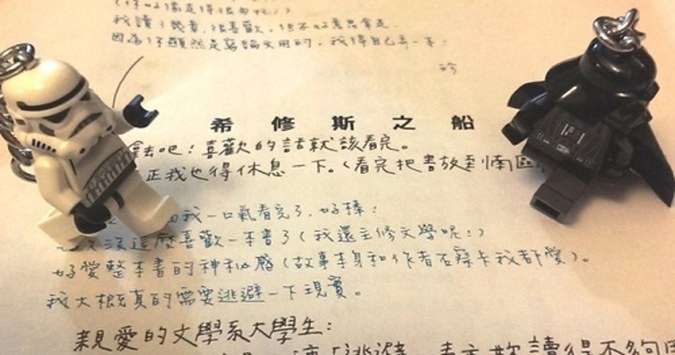 我讀了幾章,很喜歡,但不好意思拿走,
因為你顯然是寫論文用的,我得自己弄一本!
珍
希修斯之船
拿去吧!喜歡的話就該看完。
正我也得休息一下。(看完把書放到南區
我一口氣看完了,好棒!
沒這麼喜歡一本書了(我還主修文學呢!)
好愛整本書的神祕感(故事本身和作者石察卡我都愛)。
我大概真的需要逃避一下現實。
親愛的文學系大學生:
逃避
讀得不夠